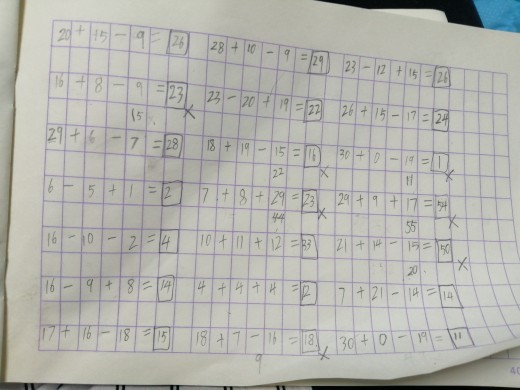 20 + 15 - 9 = 26 28 + 10 - 9 = 29 23 - 12 + 15 = 26
16 + 8 - 9 = 23 23 - 20 + 19 = 22 26 + 15 - 17 = 24
15 ×
29 + 6 - 7 = 28 18 + 19 - 15 = 16 30 + 0 - 19 = 1
22 × 11 ×
6 - 5 + 1 = 2 7 + 8 + 29 = 23 29 + 9 + 17 = 54
44 × 55 ×
16 - 10 - 2 = 4 10 + 11 + 12 = 33 21 + 14 - 15 = 50
20 ×
16 - 9 + 8 = 14 4 + 4 + 4 = 12 7 + 21 - 14 = 14
17 + 16 - 18 = 15 18 + 7 - 16 = 18 30 + 0 - 19 = 11
9 ×